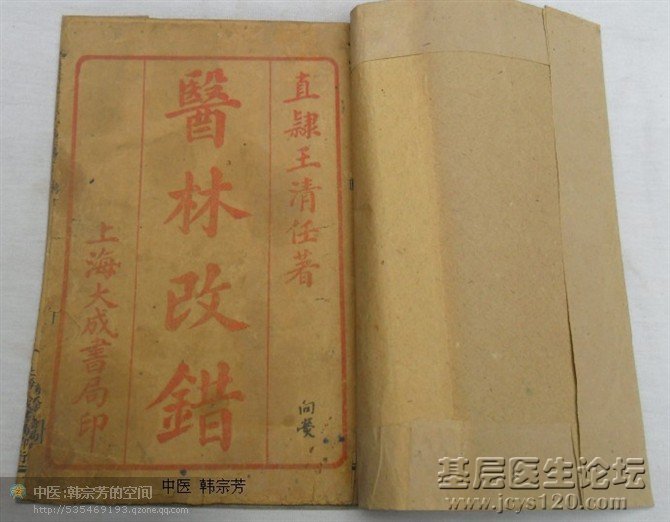 直隷王清任著
醫林改錯
上海大成書局印
中医:韩宗芳的空间
http://535469193.qzone.qq.com
中医 韩宗芳
基层医生论坛
www.jcys120.com